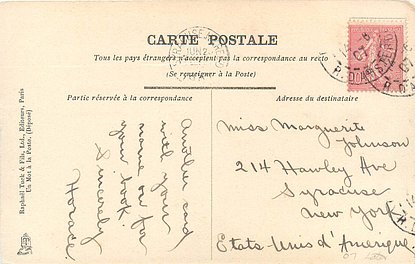 CARTE POSTALE
Tous les pays étrangers n'acceptent pas la correspondance au recto
(Se renseigner à la Poste)
Partie réservée à la correspondance
Adresse du destinataire
Another card
with your
name on for
your book.
Sincerely
Horace.
Miss Marguerite
Johnson
214 Hawley Ave
Syracuse
New York
Etats-Unis d'Amerique
Raphaël Tuck & Fils, Ltd., Editeurs, Paris
Un Mot à la Poste. (Déposé)